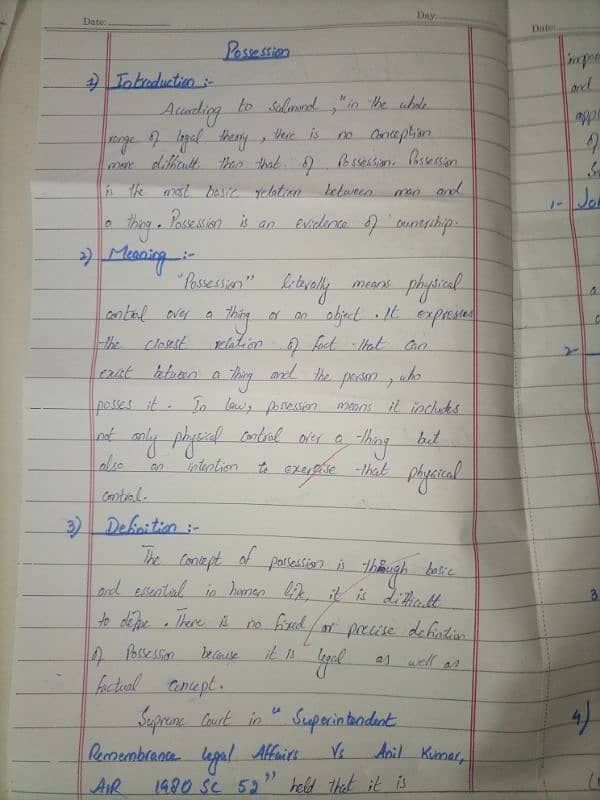 Date: Day:
Possession
1) Introduction :-
According to Salmond, "in the whole
range of legal theory, there is no conception
more difficult than that of Possession. Possession
is the most basic relation between man and
a thing. Possession is an evidence of ownership.
2) Meaning :-
"Possession" literally means physical
control over a thing or an object. It expresses
the closest relation of fact that can
exist between a thing and the person, who
posses it. In law, possession means it includes
not only physical control over a thing but
also an intention to exercise that physical
control.
3) Definition :-
The concept of possession is through basic
and essential in human life, it is difficult
to define. There is no fixed or precise definition
of Possession because it is legal as well as
factual concept.
Supreme Court in "Superintendent
Remembrance legal Affairs Vs Anil Kumar,
AIR 1980 SC 52" held that it is
Date:
and
of
1-
2-
3
4)